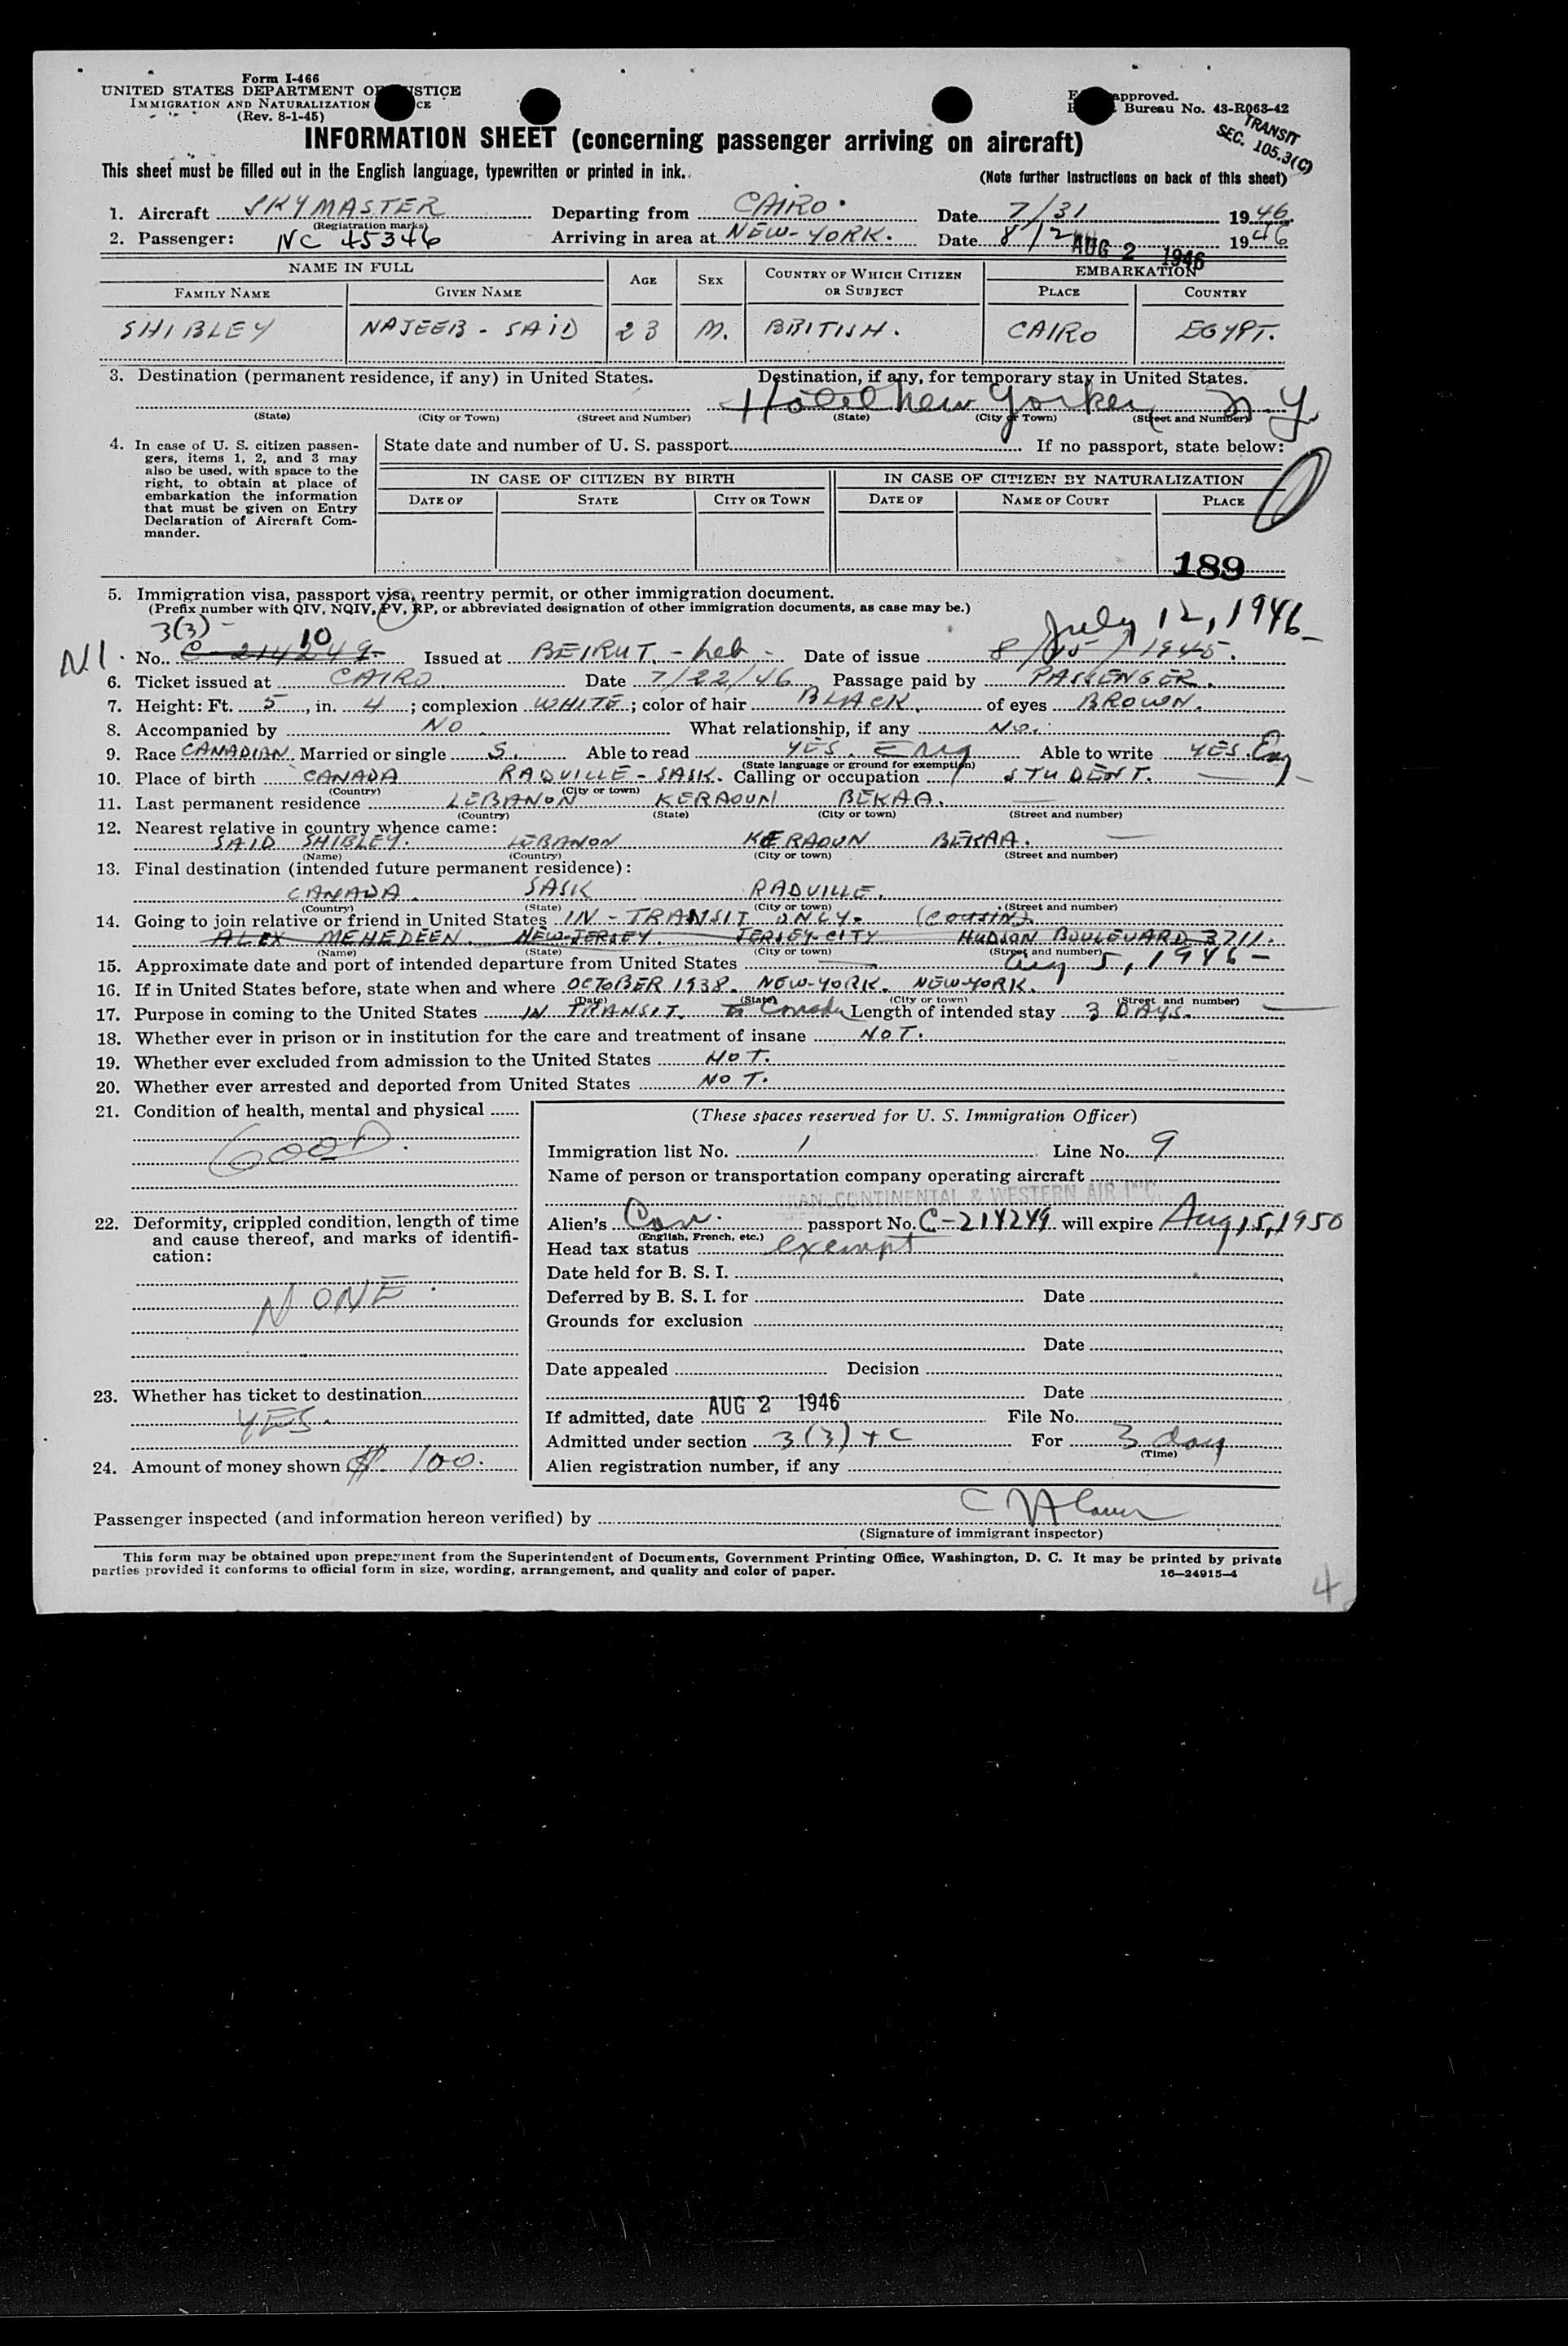 Form I-466
UNITED STATES DEPARTMENT OF JUSTICE
IMMIGRATION AND NATURALIZATION CE
(Rev. 8-1-45)
approved.
Bureau No. 43-R063-42
TRANSIT
SEC. 105.3(C)
INFORMATION SHEET (concerning passenger arriving on aircraft)
This sheet must be filled out in the English language, typewritten or printed in ink.
(Note further instructions on back of this sheet)
1. Aircraft SKYMASTER Departing from CAIRO. Date 7/31 1946
(Registration marks)
2. Passenger: NC 45346 Arriving in area at NEW-YORK. Date 8/2 1946
AUG 2 1946
NAME IN FULL AGE SEX COUNTRY OF WHICH CITIZEN OR SUBJECT EMBARKATION
FAMILY NAME GIVEN NAME PLACE COUNTRY
SHIBLEY NAJEEB - SAID 23 M. BRITISH. CAIRO EGYPT.
3. Destination (permanent residence, if any) in United States. Destination, if any, for temporary stay in United States.
Hotel New Yorker N.Y.
(State) (City or Town) (Street and Number) (State) (City or Town) (Street and Number)
4. In case of U. S. citizen passengers, items 1, 2, and 3 may also be used, with space to the right, to obtain at place of embarkation the information that must be given on Entry Declaration of Aircraft Commander.
State date and number of U. S. passport If no passport, state below:
IN CASE OF CITIZEN BY BIRTH IN CASE OF CITIZEN BY NATURALIZATION
DATE OF STATE CITY OR TOWN DATE OF NAME OF COURT PLACE
0
189
5. Immigration visa, passport visa, reentry permit, or other immigration document.
(Prefix number with QIV, NQIV, PV, RP, or abbreviated designation of other immigration documents, as case may be.)
3(3) - 10 July 12, 1946
N.I. No. C-214249 Issued at BEIRUT. - Leb - Date of issue 8/15/1945.
6. Ticket issued at CAIRO Date 7/22/46 Passage paid by PASSENGER.
7. Height: Ft. 5, in. 4; complexion WHITE; color of hair BLACK. of eyes BROWN.
8. Accompanied by NO. What relationship, if any NO.
9. Race CANADIAN Married or single S. Able to read YES. Eng Able to write YES. Eng
(State language or ground for exemption)
10. Place of birth CANADA RADVILLE - SASK. Calling or occupation STUDENT.
(Country) (City or town)
11. Last permanent residence LEBANON KERAOUN BEKAA.
(Country) (State) (City or town) (Street and number)
12. Nearest relative in country whence came:
SAID SHIBLEY. LEBANON KERAOUN BEKAA.
(Name) (Country) (City or town) (Street and number)
13. Final destination (intended future permanent residence):
CANADA. SASK RADVILLE.
(Country) (State) (City or town) (Street and number)
14. Going to join relative or friend in United States IN - TRANSIT ONLY. (COUSIN).
ALEX MEHEDEEN. NEW-JERSEY. JERSEY-CITY HUDSON BOULEVARD 3711.
(Name) (State) (City or town) (Street and number)
15. Approximate date and port of intended departure from United States Aug 5, 1946
16. If in United States before, state when and where OCTOBER 1938. NEW-YORK. NEW-YORK.
(Date) (State) (City or town) (Street and number)
17. Purpose in coming to the United States IN TRANSIT. to Canada Length of intended stay 3 DAYS.
18. Whether ever in prison or in institution for the care and treatment of insane NOT.
19. Whether ever excluded from admission to the United States NOT.
20. Whether ever arrested and deported from United States NOT.
21. Condition of health, mental and physical
GOOD.
22. Deformity, crippled condition, length of time and cause thereof, and marks of identification:
NONE.
23. Whether has ticket to destination
YES.
24. Amount of money shown $ 100.
(These spaces reserved for U. S. Immigration Officer)
Immigration list No. 1 Line No. 9
Name of person or transportation company operating aircraft
TRANSCONTINENTAL & WESTERN AIR INC.
Alien's Can. passport No. C-214249 will expire Aug 15, 1950
(English, French, etc.)
Head tax status exempt
Date held for B. S. I.
Deferred by B. S. I. for Date
Grounds for exclusion
Date
Date appealed Decision
Date
If admitted, date AUG 2 1946 File No.
Admitted under section 3(3) + C For 3 day
(Time)
Alien registration number, if any
Passenger inspected (and information hereon verified) by
(Signature of immigrant inspector)
This form may be obtained upon prepayment from the Superintendent of Documents, Government Printing Office, Washington, D. C. It may be printed by private
parties provided it conforms to official form in size, wording, arrangement, and quality and color of paper.
16-24915-4
4